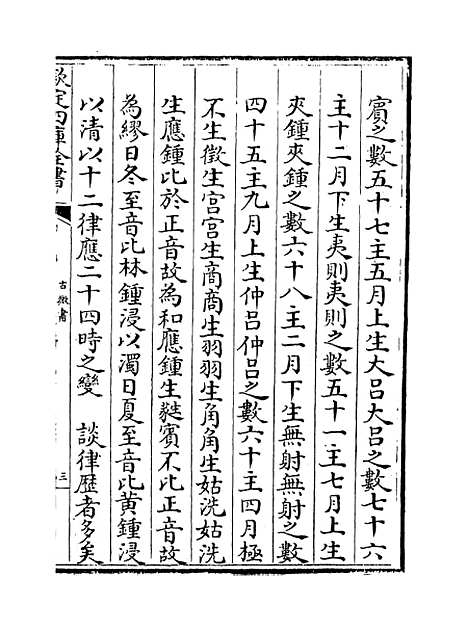 賓之數五十七主五月上生大呂大呂之數七十六
主十二月下生夷則夷則之數五十一主七月上生
夾鍾夾鍾之數六十八主二月下生無射無射之數
四十五主九月上生仲呂仲呂之數六十主四月極
不生徵生宮宮生商商生羽羽生角角生姑洗姑洗
生應鍾比於正音故為和應鍾生蕤賓不比正音故
為繆日冬至音比林鍾浸以濁日夏至音比黃鍾浸
以清以十二律應二十四時之變　談律歷者多矣
欽定四庫全書
古微書
三